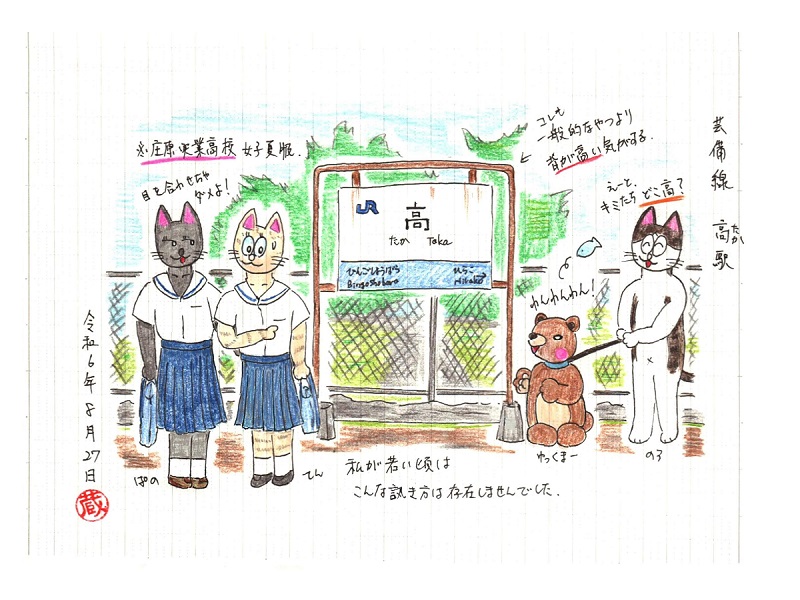 芸備線 高駅
たか
コレも
一般的なやつより
背が高い気がする.
えーと、
キミたちどこ高?
※庄原実業高校 女子夏服.
目を合わせちゃ
ダメよ!
JR
高
たか Taka
びんごしょうばら
Bingoshobara
わんわんわん!
ぱの
てん
わっくまー
のろ
私が若い頃は
こんな訊き方は存在しませんでした.
令和6年8月27日
蔵